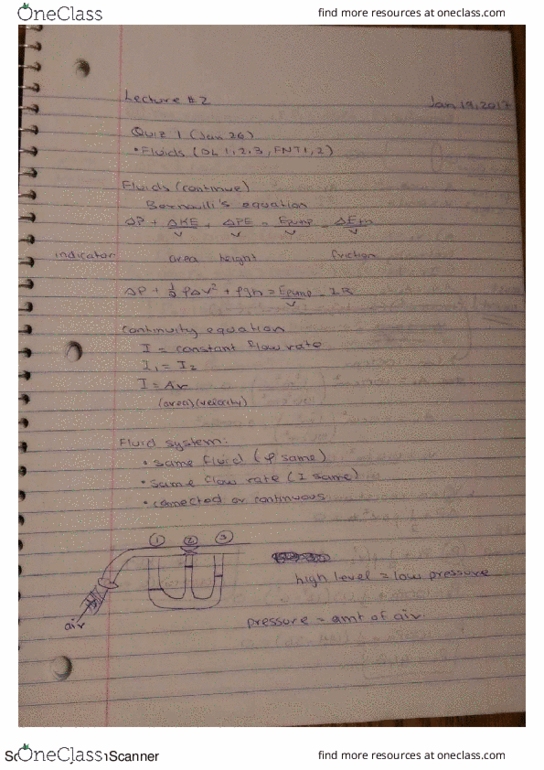 OneClass find more resources at oneclass.com
Lecture #2 Jan 19, 2017
Quiz 1 (Jan 26)
• Fluids (DL 1, 2, 3, FNT 1, 2)
Fluids (continue)
Bernoulli's equation
ΔP + ΔKE + ΔPE = Epump - ΔEth
v v v v
indicator area height friction
ΔP + 1/2 ρΔv² + ρgh = Epump - IR
v
Continuity equation
I = constant flow rate
I₁ = I₂
I = Av
(area)(velocity)
Fluid system:
• same fluid (ρ same)
• same flow rate (I same)
• connected or continuous
① ② ③
high level = low pressure
air
pressure = amt of air
OneClass Scanner find more resources at oneclass.com